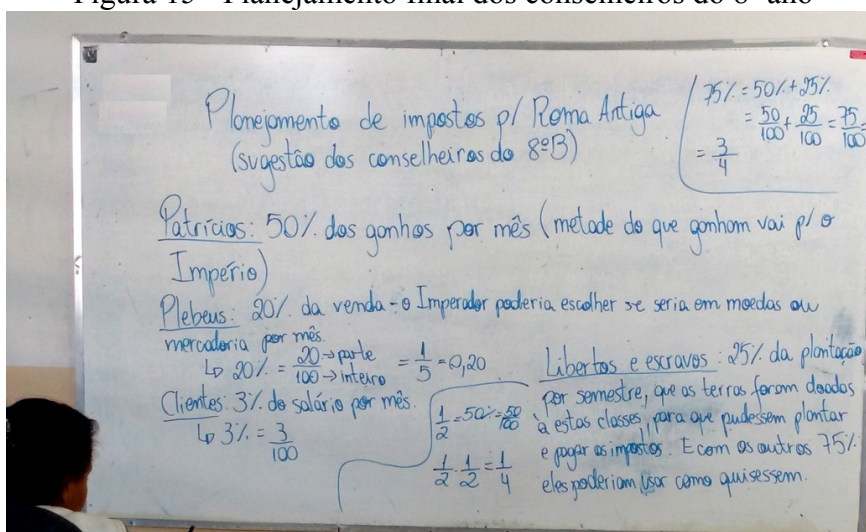 Figura 15 - Planejamento final dos conselheiros do 8º ano
Planejamento de impostos p/ Roma Antiga
(sugestão dos conselheiros do 8ºB)
75% = 50% + 25%
= 50/100 + 25/100 = 75/100 =
= 3/4
Patrícios: 50% dos ganhos por mês (metade do que ganham vai p/ o
Império)
Plebeus: 20% da venda - o Imperador poderia escolher se seria em moedas ou
mercadoria por mês.
↳ 20% = 20/100 → parte → inteiro = 1/5 = 0,20
Clientes: 3% do salário por mês.
↳ 3% = 3/100
1/2 = 50% = 50/100
1/2 . 1/2 = 1/4
Libertos e escravos: 25% da plantação
por semestre, que as terras foram doadas
à estas classes, para que pudessem plantar
e pagar os impostos. E com os outros 75%
eles poderiam usar como quisessem.